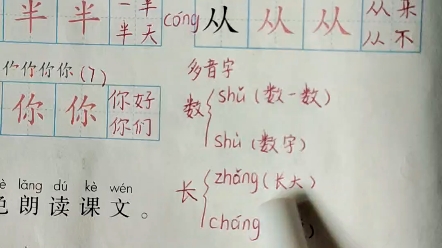 半 半 一半 cóng 从 从 从 从来
半天 从不
你你你你(7) 多音字
你 你 你好 数 shǔ (数一数)
你们 shù (数字)
lǎng dú kè wén 长 zhǎng (长大)
朗读课文。 cháng